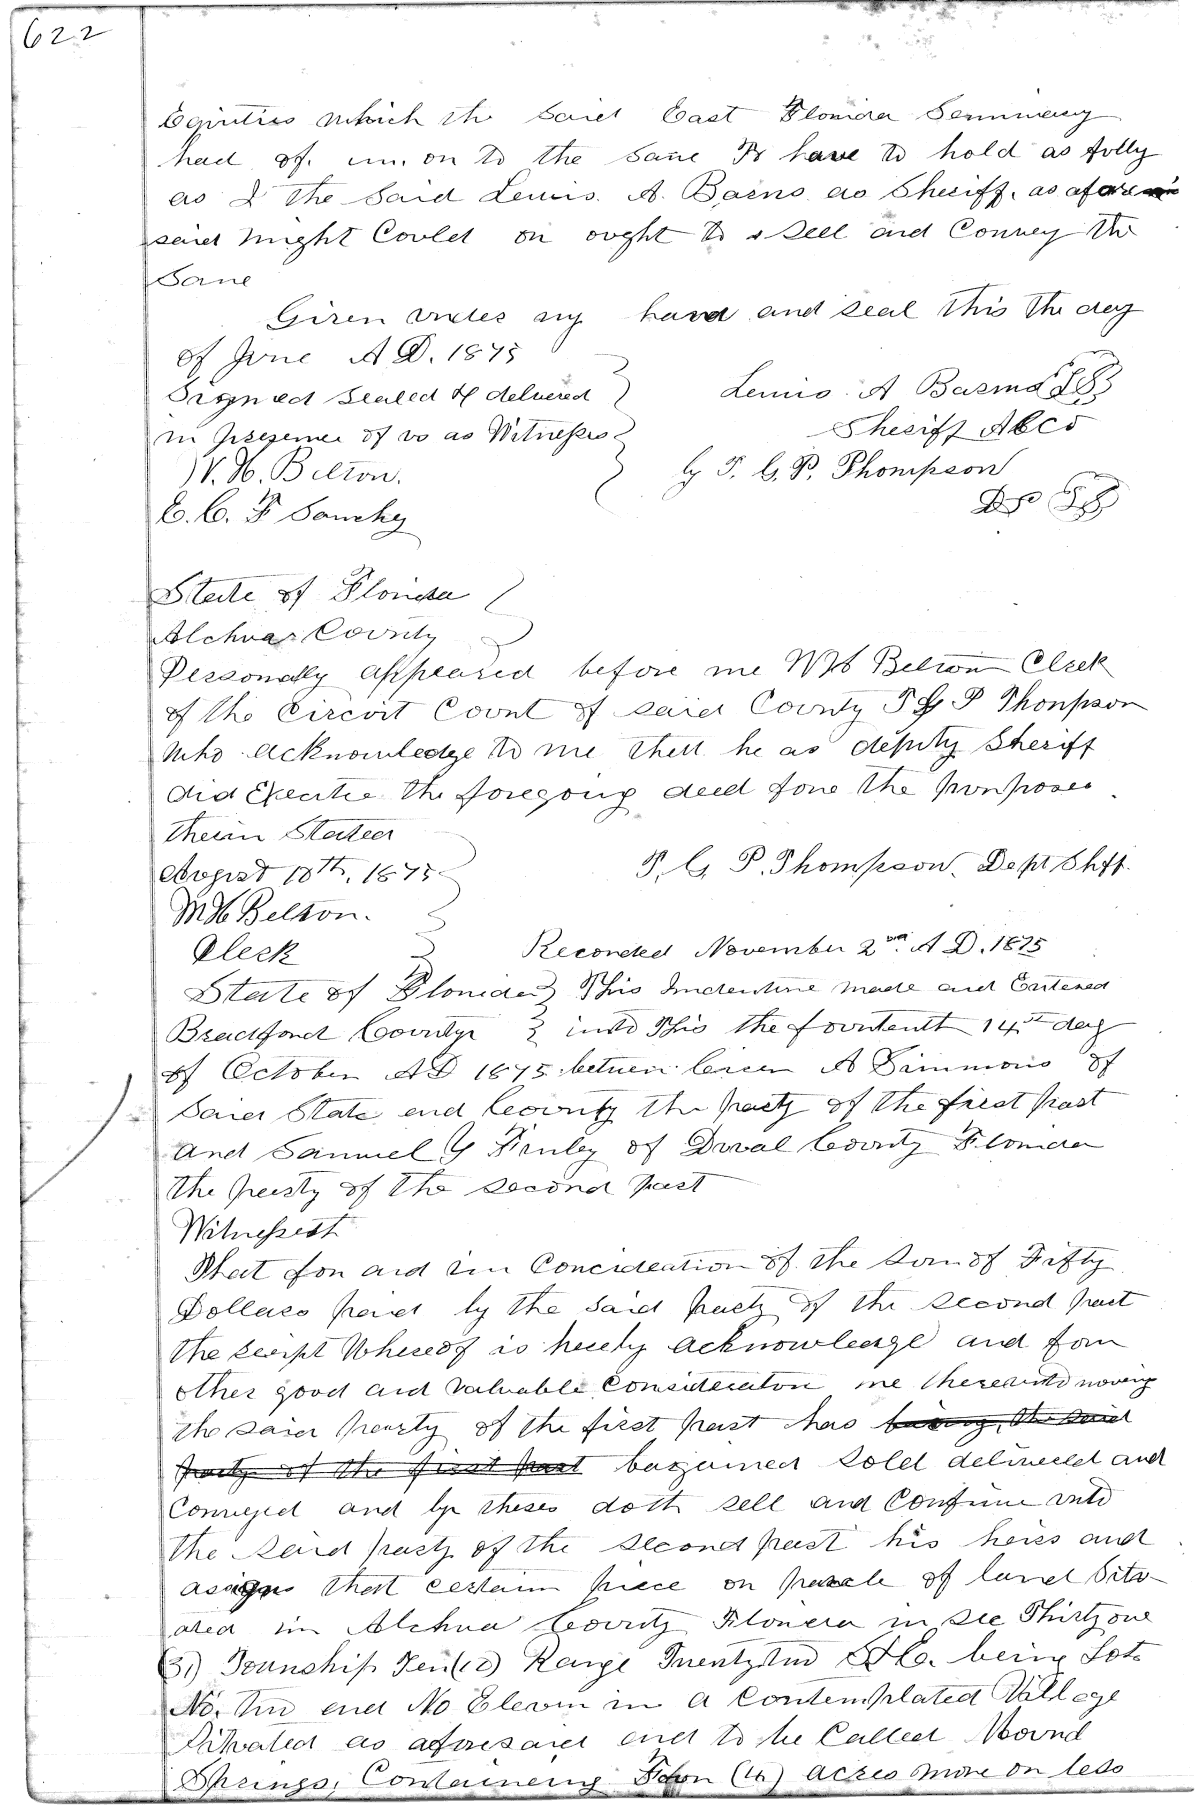 622
Equities which the said East Florida Seminary
had of. in. or to the same To have to hold as fully
as I the said Lewis. A. Barns as Sheriff, as afore
said might Could or ought to sell and Convey the
Same
Given under my hand and seal this The day
of June A D. 1875
Signed sealed & delivered
in presence of us as Witnesses
W. H. Belton.
E. C. F Sanchy
Lewis. A Barns LS
Sheriff A Co
by T. G. P. Thompson
DS LS
State of Florida
Alchua County
Personally appeared before me WH Belton Clerk
of the Circuit Court of said County T G P Thompson
who acknowledge to me that he as deputy Sheriff
did Execute the foregoing deed fore the purposes
therin Stated
August 18th, 1875
WH Belton.
Clerk
T. G. P. Thompson. Dept Shff.
Recorded November 2nd A D. 1875
State of Florida This Indenture made and Entered
Bradford County into This the fourtenth 14th day
of October AD 1875 betwen Green A Simmons of
said State and County the party of the first part
and Samuel Y Finley of Duval County Florida
the party of the second part
Witnesseth
That for and in Concideration of the sum of Fifty
Dollars paid by the said party of the second part
the receipt Whereof is hereby acknowledge and for
other good and valuable consideraton me thereunto moving
the said party of the first part has being, the said
party of the first part bargained sold delivered and
Conveyed and by theses doth sell and Confirm unto
the said party of the second part his heirs and
assigns that certain piece or parcle of land Situ
ated in Alchua County Florida in sec Thirty one
(31) Township Ten (10) Range Twenty two S & E. being Lots
No. Two and No Eleven in a Contemplated Village
Situated as aforesaid and to be Called Mound
Springs, Containing Four (4) acres more or less